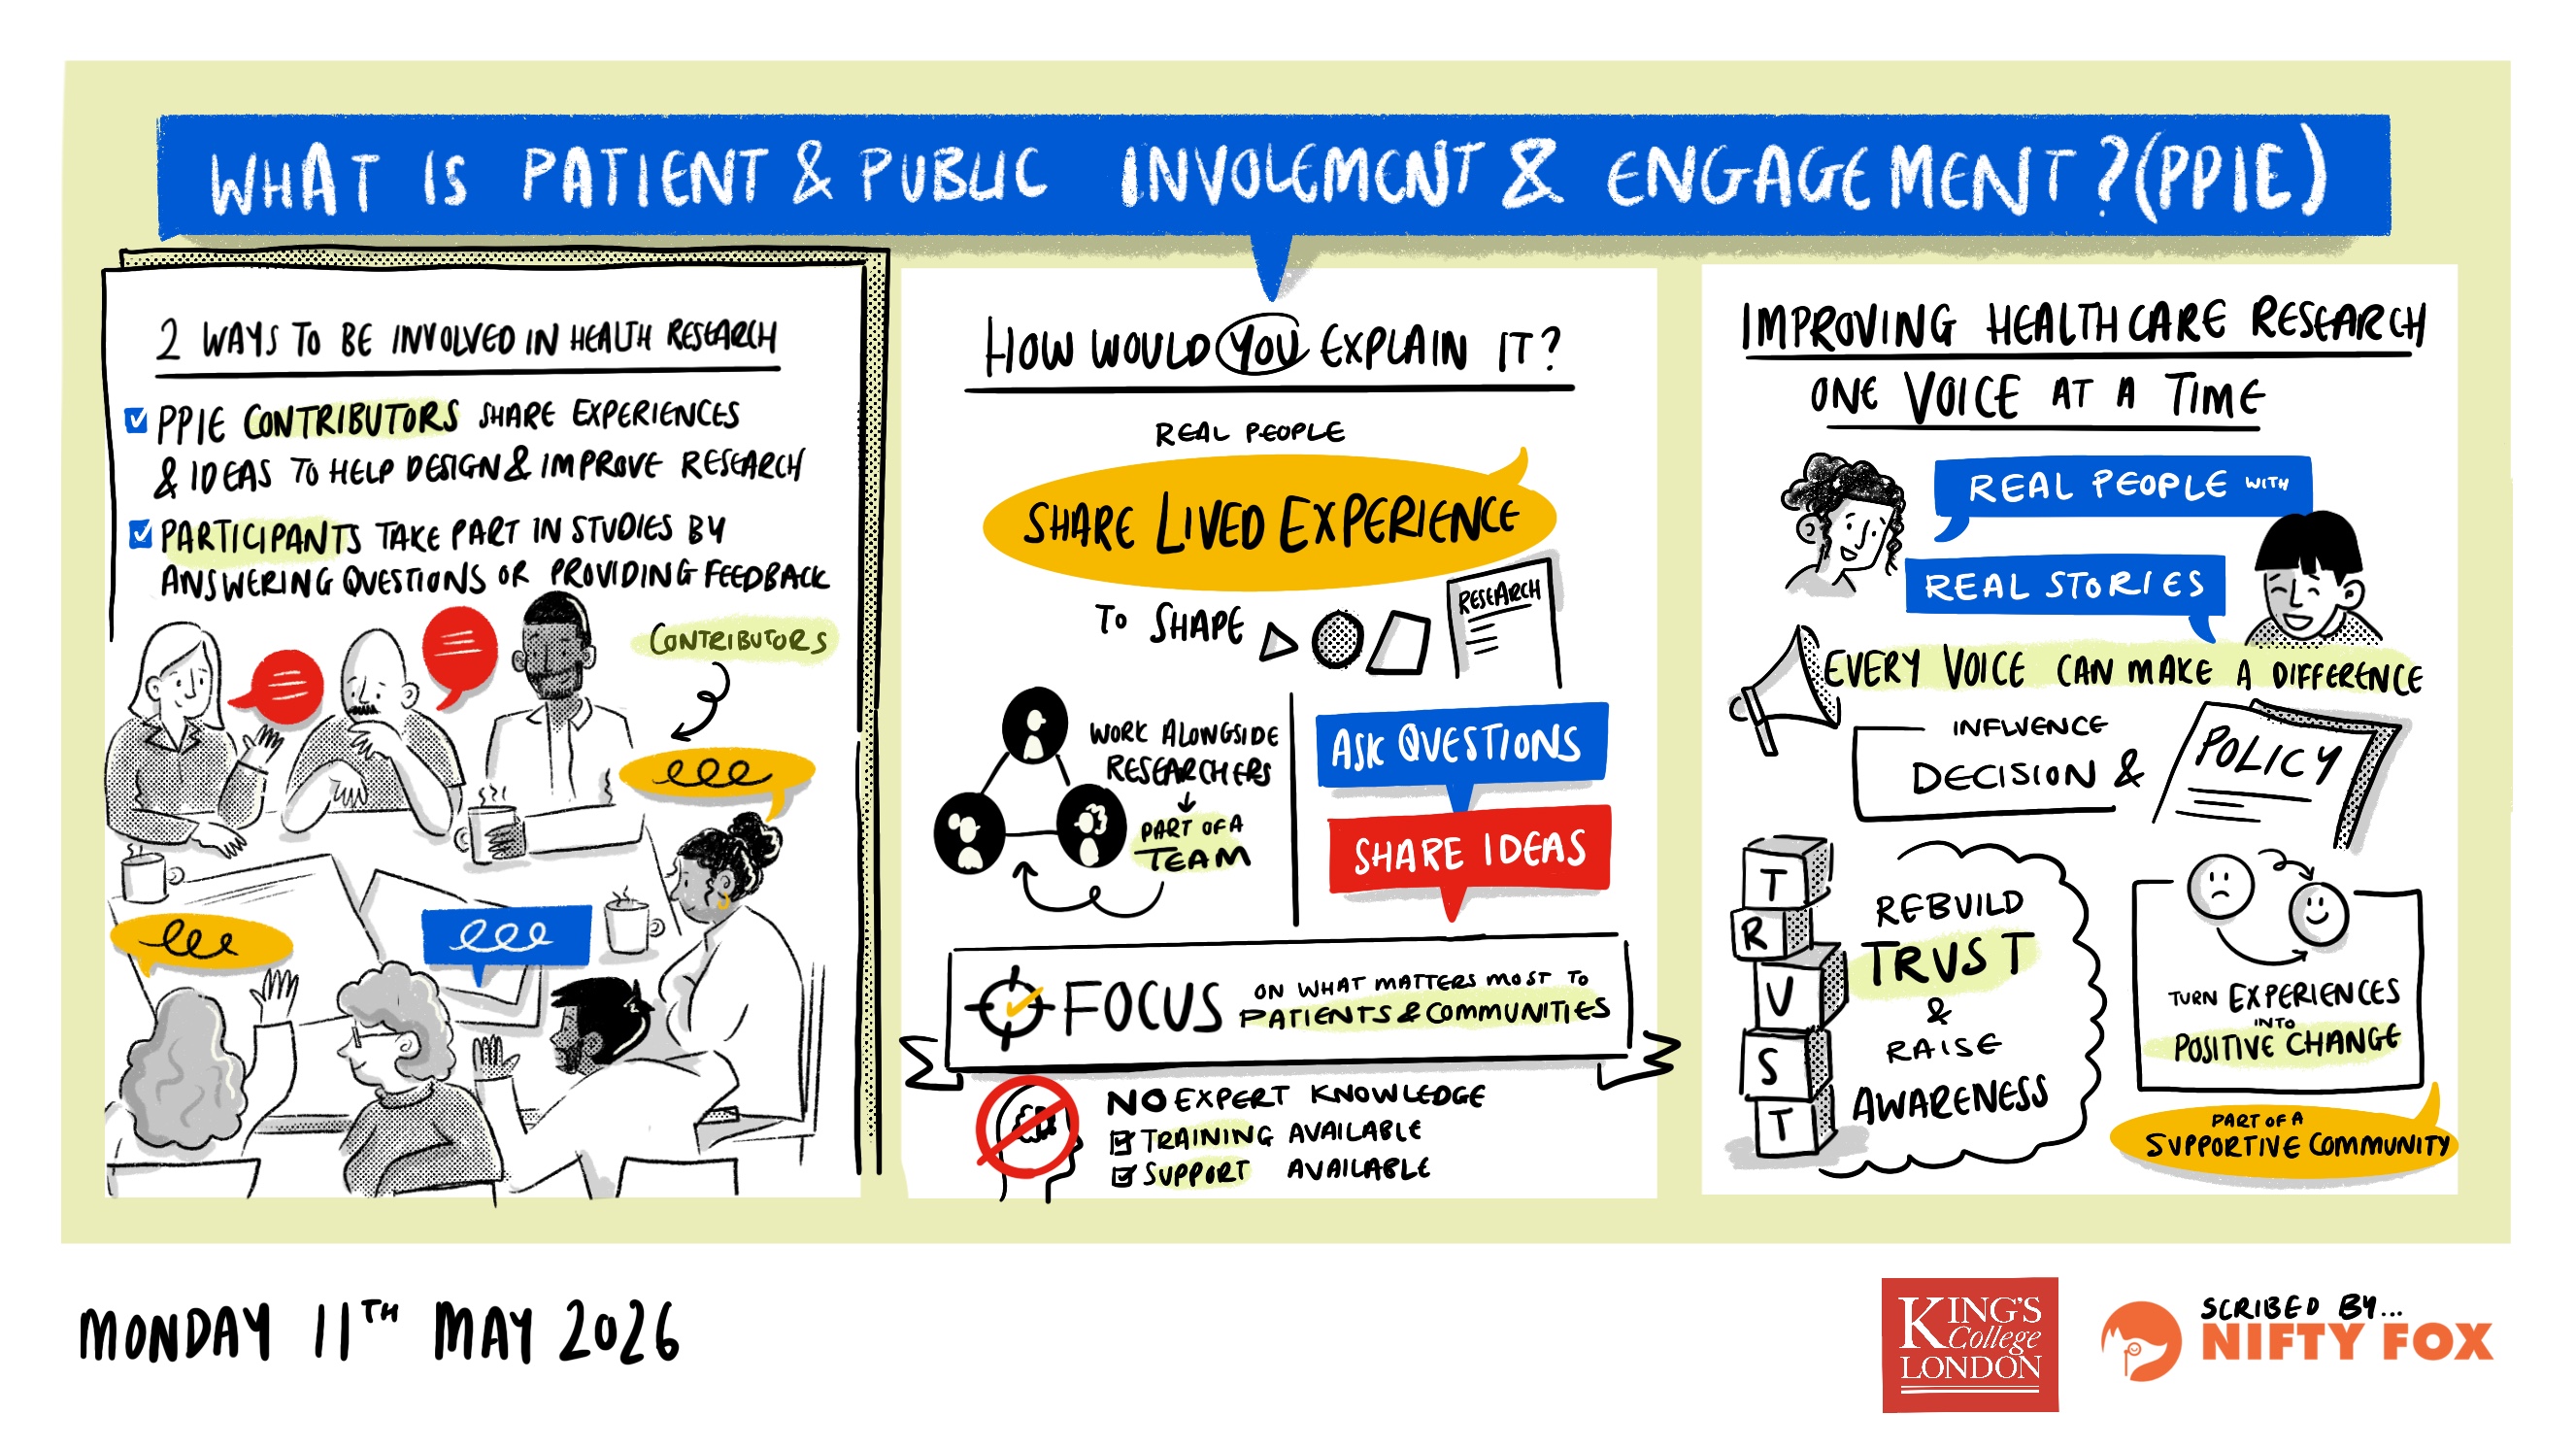 WHAT IS PATIENT & PUBLIC INVOLEMENT & ENGAGEMENT? (PPIE)
2 WAYS TO BE INVOLVED IN HEALTH RESEARCH
PPIE CONTRIBUTORS SHARE EXPERIENCES
& IDEAS TO HELP DESIGN & IMPROVE RESEARCH
PARTICIPANTS TAKE PART IN STUDIES BY
ANSWERING QUESTIONS OR PROVIDING FEEDBACK
CONTRIBUTORS
HOW WOULD YOU EXPLAIN IT?
REAL PEOPLE
SHARE LIVED EXPERIENCE
TO SHAPE
RESEARCH
WORK ALONGSIDE
RESEARCHERS
PART OF A
TEAM
ASK QUESTIONS
SHARE IDEAS
FOCUS
ON WHAT MATTERS MOST TO
PATIENTS & COMMUNITIES
NO EXPERT KNOWLEDGE
TRAINING AVAILABLE
SUPPORT AVAILABLE
IMPROVING HEALTHCARE RESEARCH
ONE VOICE AT A TIME
REAL PEOPLE WITH
REAL STORIES
EVERY VOICE CAN MAKE A DIFFERENCE
INFLUENCE
DECISION &
POLICY
T
R
U
S
T
REBUILD
TRUST
&
RAISE
AWARENESS
TURN EXPERIENCES
INTO
POSITIVE CHANGE
PART OF A
SUPPORTIVE COMMUNITY
MONDAY 11TH MAY 2026
KING'S
College
LONDON
SCRIBED BY...
NIFTY FOX